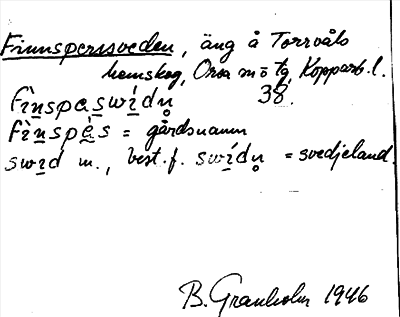 Finnsperssveden, äng å Torrvåls
hemskog, Orsa sn o tg, Kopparb. l.
38.
fìnspaswídṇ
fìnspàs = gårdsnamn
swid m., best. f. swídṇ = svedjeland.
B. Granholm 1946